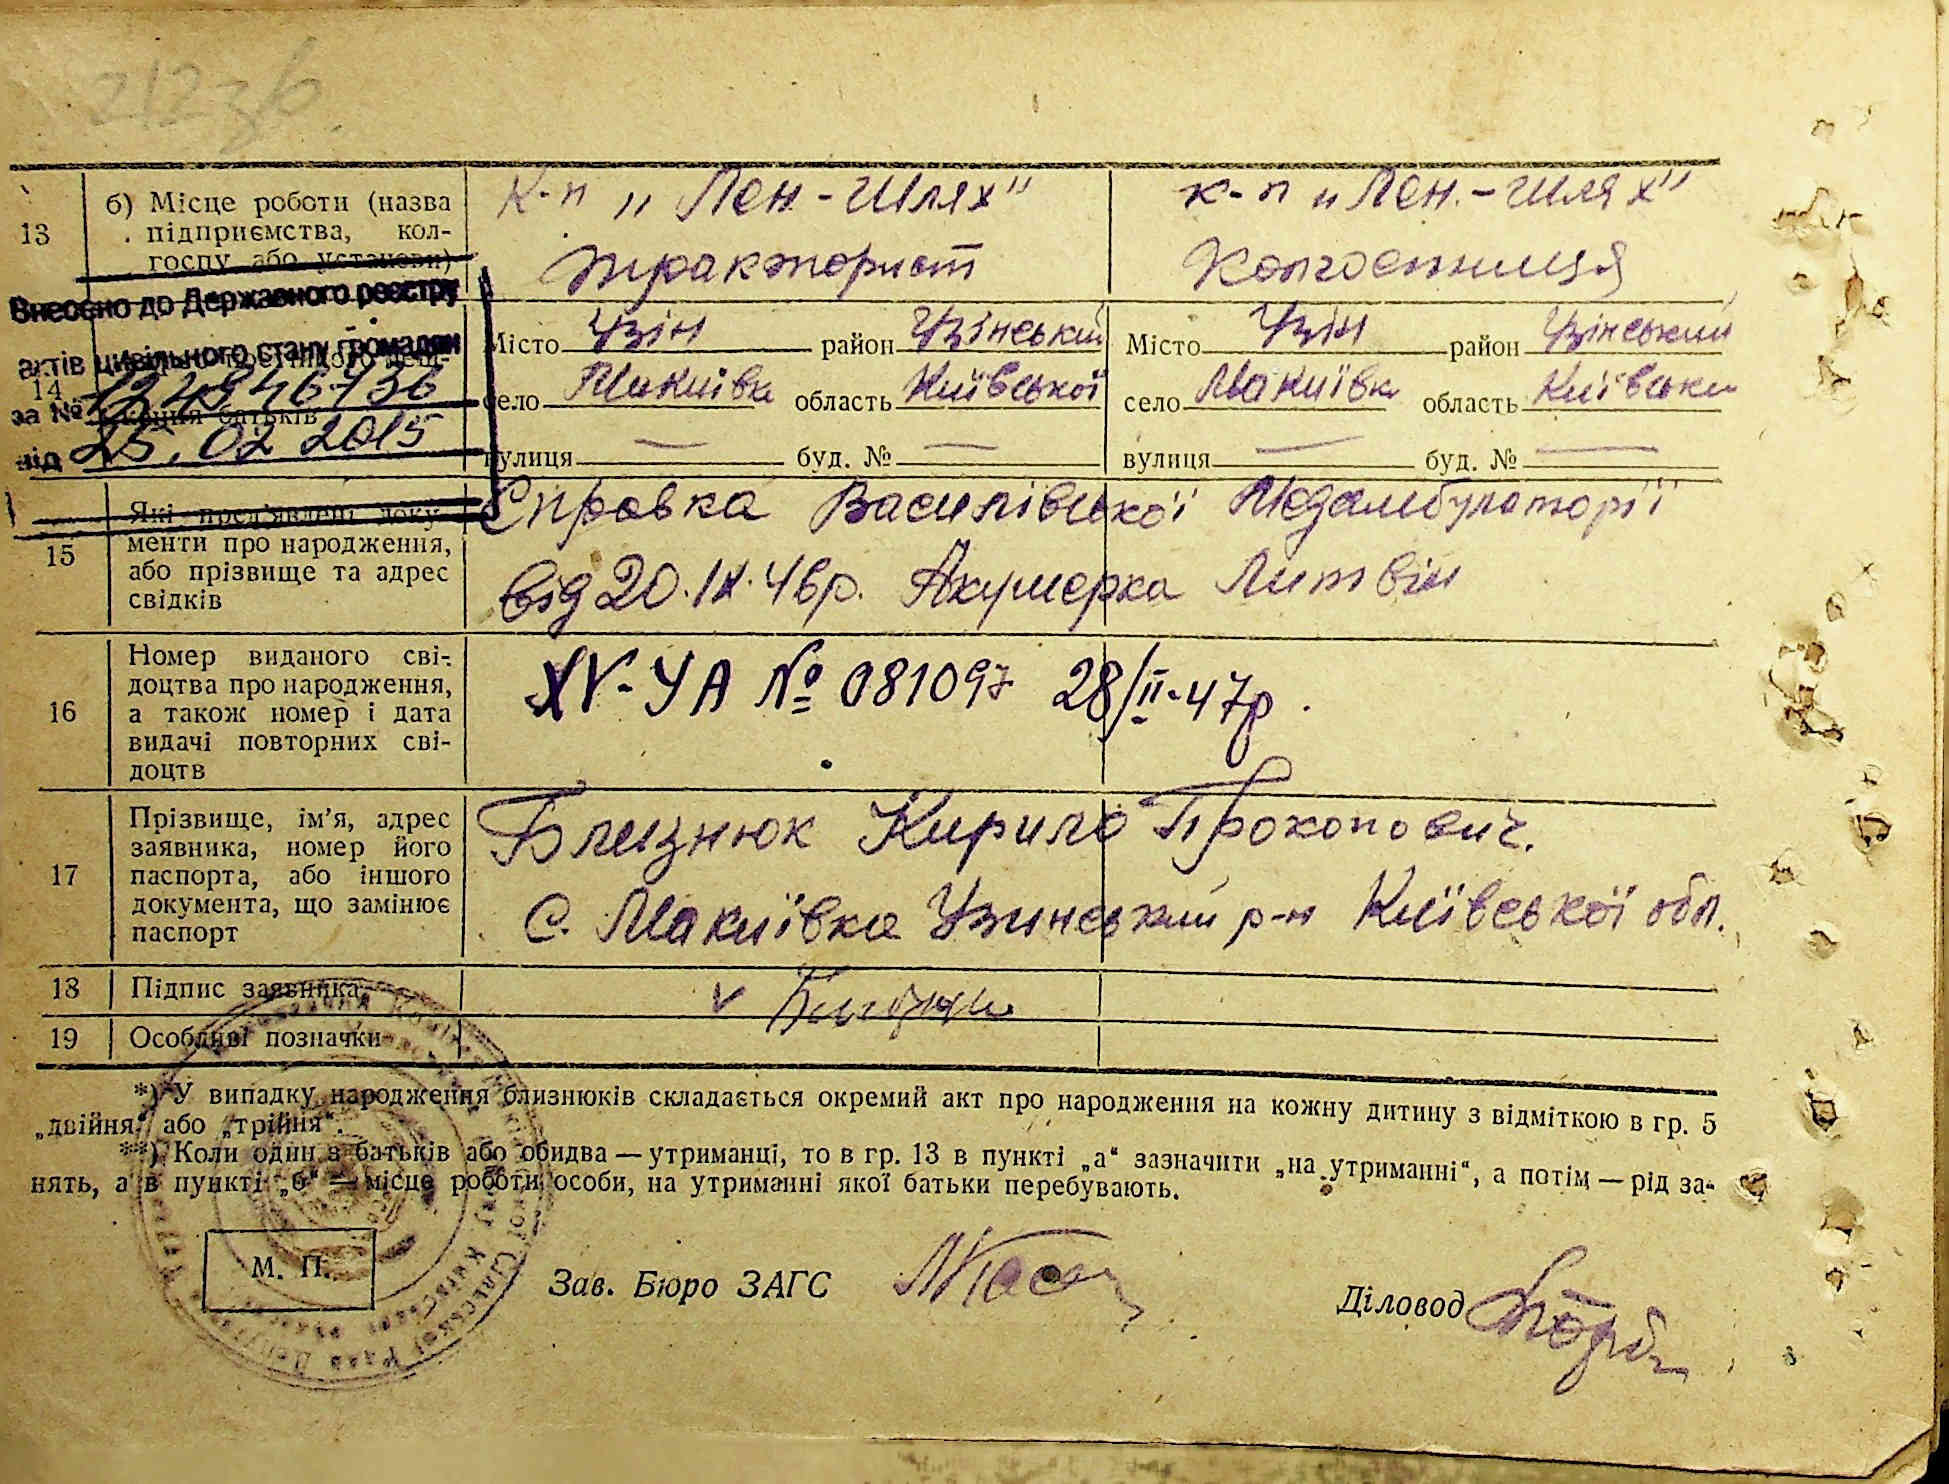 212зв
13 б) Місце роботи (назва підприємства, колгоспу або установи)
к-п „Лен.-Шлях" тракторист
к-п „Лен.-Шлях" колгоспниця
Внесено до Державного реєстру
актів цивільного стану громадян
за № 124946736
від 25.02 2015
14
Місто Узін район Узінський
село Макиївка область Київської
вулиця — буд. № —
Місто Узін район Узінський
село Макиївка область Київськи
вулиця — буд. № —
15 Які пред'явлені документи про народження, або прізвище та адрес свідків
Справка Василівської Медамбулаторії
від 20.IX.46р. Акушерка Литвін
16 Номер виданого сві-
доцтва про народження,
а також номер і дата
видачі повторних сві-
доцтв
XV-УА № 081097 28/II-47р.
17 Прізвище, ім'я, адрес
заявника, номер його
паспорта, або іншого
документа, що замінює
паспорт
Близнюк Кирило Прокопович.
С. Макиївка Узинський р-н Київської обл.
18 Підпис заявника
19 Особливі позначки
*) У випадку народження близнюків складається окремий акт про народження на кожну дитину з відміткою в гр. 5
„двійня" або „трійня".
**) Коли один з батьків або обидва — утриманці, то в гр. 13 в пункті „а" зазначити „на утриманні", а потім — рід за-
нять, а в пункті „б" — місце роботи особи, на утриманні якої батьки перебувають.
М. П.
Зав. Бюро ЗАГС
Діловод